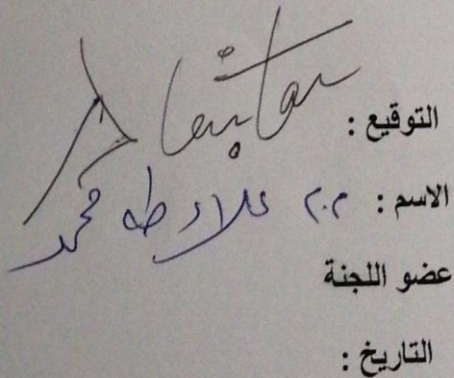 التوقيع :
الاسم : م.م علاء طه محمد
عضو اللجنة
التاريخ :